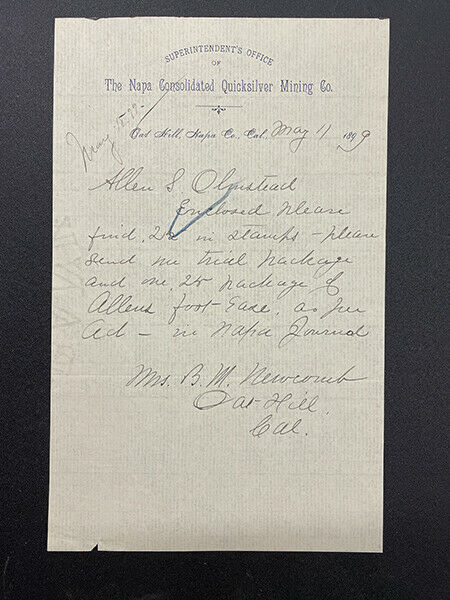 SUPERINTENDENT'S OFFICE
OF
The Napa Consolidated Quicksilver Mining Co.
Oat Hill, Napa Co., Cal., May 11 1899
Allen S. Olmstead
Enclosed please
find, 25 in stamps – please
send me trial package
and one 25 package of
Allens foot-Ease, as per
Ad – in Napa Journal
Mrs. B. M. Newcomb
Oat-Hill.
Cal.